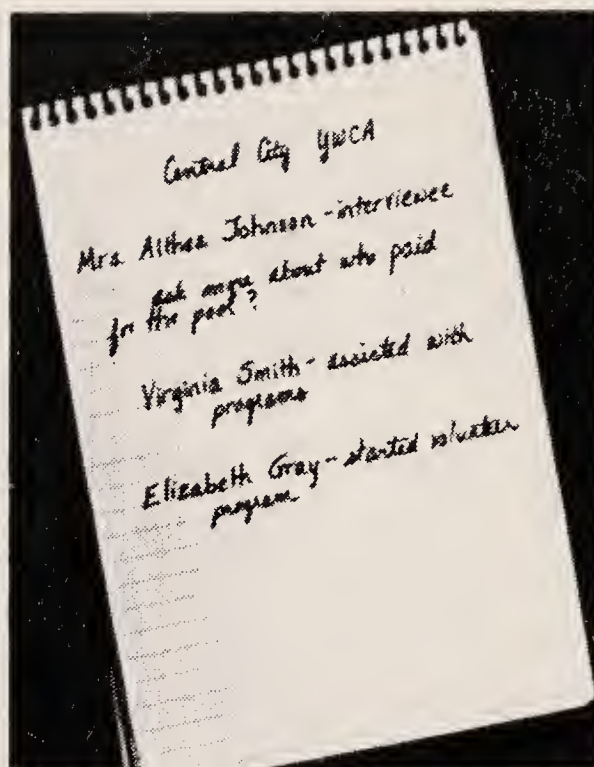 Central City YWCA
Mrs. Althea Johnson - interviewee
ask more about who paid
for the pool?
Virginia Smith - assisted with
programs
Elizabeth Gray - started volunteer
program